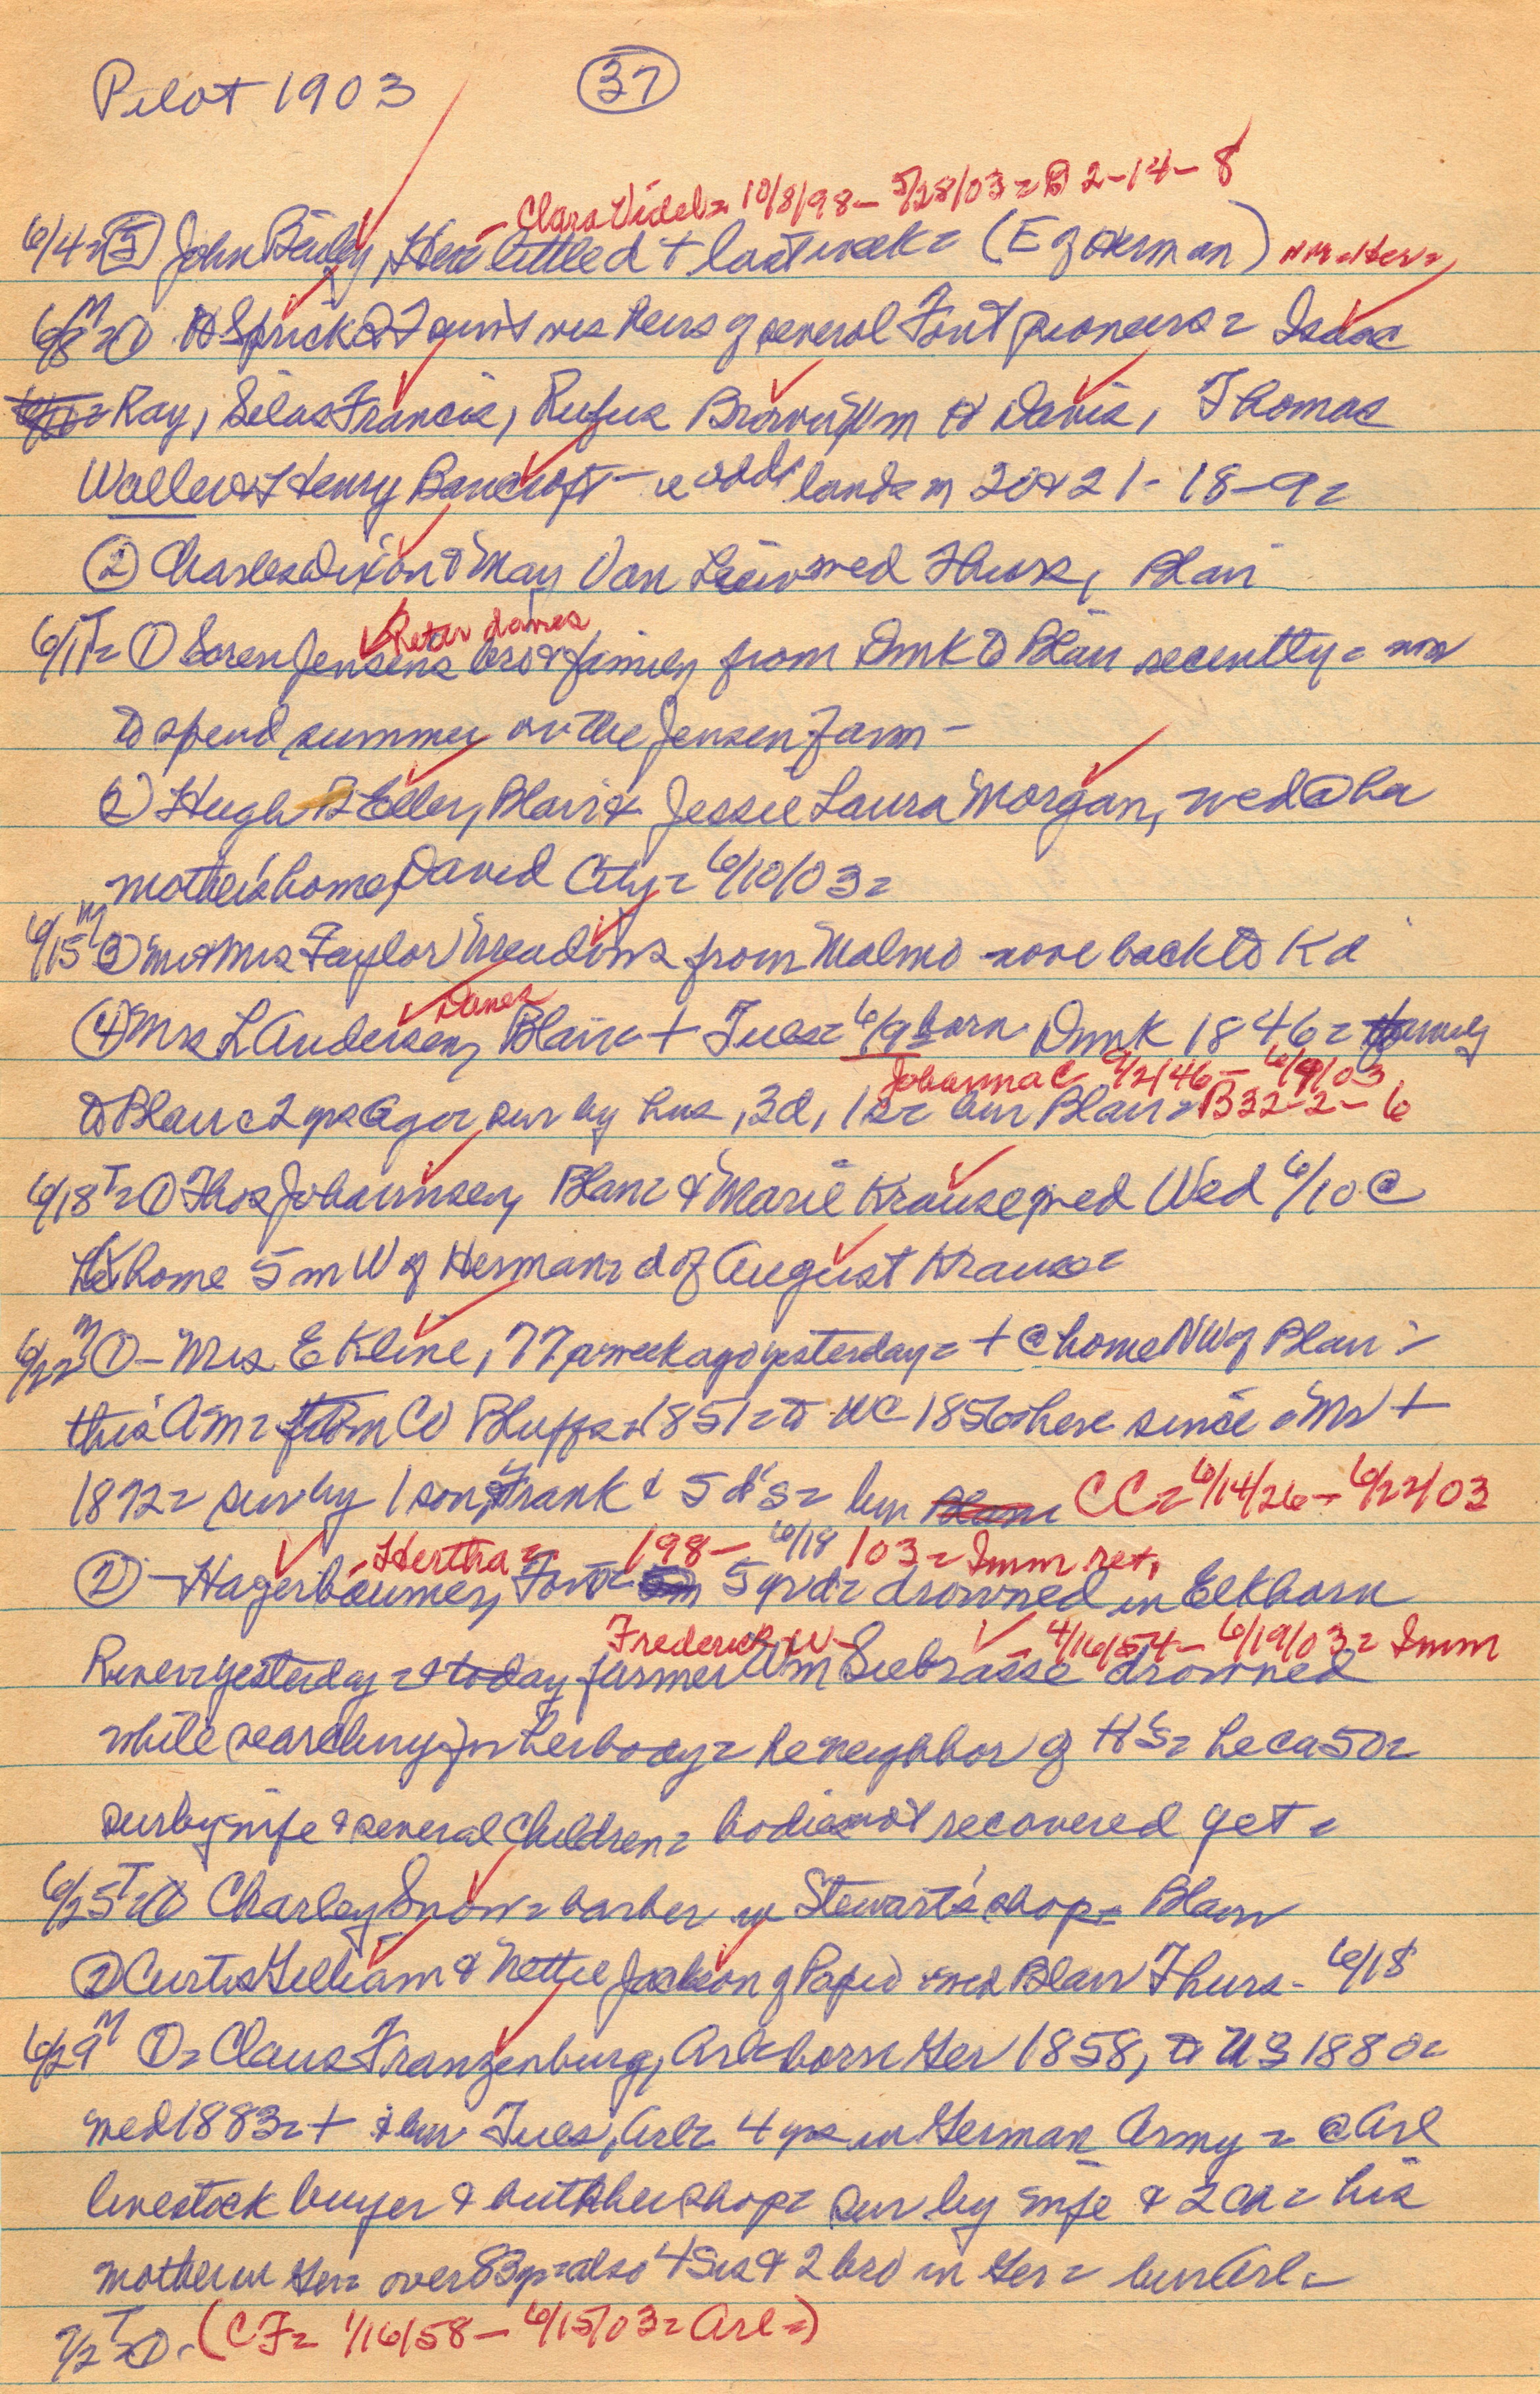 Pilot 1903 (37)
- Clara Videl = 10/8/98 - 5/28/03 = B 2-14-8
6/4 = [5] John, Her = little d + last week = (E of Herman) =Her=
6/8 M = ① H Sprick & Fauns heirs of several Font pioneers = Isaac
Ray, Silas Francis, Rufus Brown, Wm H Davis, Thomas
Waller & Henry Bancroft - lands in 20 & 21-18-9 =
② Charles Dixon & May Van wed Thurs, Blair
Peter danes
6/11 T = ① Soren Jensens bro & family from Dmk to Blair recently = now
to spend summer on the Jensen farm -
② Hugh Eller, Blair & Jessie Laura Morgan, wed @ her
mother's home, David City = 6/10/03 =
6/15 M ③ Mr & Mrs Taylor Meadows from Malmo move back to Kd
Danes
④ Mrs L Andersen, Blair = + Tues = 6/9 = born Dmk 1846 = family
Johanna C 9/2/46 - 6/9/03
to Blair c 2 yrs ago = sur by hus, 3 d, 1 s = bur Blair = B 32-2-6
6/18 T = ① Thos Johannsen, Blair & Marie Krause, wed Wed 6/10 @
her home 5 m W of Herman = d of August Krause =
6/22 M ① - Mrs E Kline, 77 a week ago yesterday = + @ home NW of Blair =
this AM = from Co Bluffs = 1851 = to WC 1856 = here since = Mr +
1872 = sur by 1 son, Frank & 5 d's = bur Blair CC = 6/14/26 - 6/22/03
Hertha = /98 - 6/18/03 = Imm ret,
② - Hagerbaumer, Font = 5 yr d = drowned in Elkhorn
Frederick W - 4/16/54 - 6/19/03 = Imm
River = yesterday = & today farmer Wm Seebrasse drowned
while searching for her body = he neighbor of H's = he ca 50 =
sur by wife & several children = bodies not recovered yet =
6/25 T = ① Charley Snow = barber in Stewart's shop = Blair
② Curtis Gilliam & Nettie Jackson of Papio wed Blair Thurs - 6/18
6/29 M ① = Claus Franzenburg, Arl = born Ger 1858, to US 1880 =
wed 1883 = + & bur Tues, Arl = 4 yrs in German Army = @ Arl
livestock buyer & butcher shop = sur by wife & 2 ch = his
mother in Ger = over 83 yr = also 4 sis & 2 bro in Ger = bur Arl =
7/2 T = ① - (CF = 1/16/58 - 6/15/03 = Arl =)